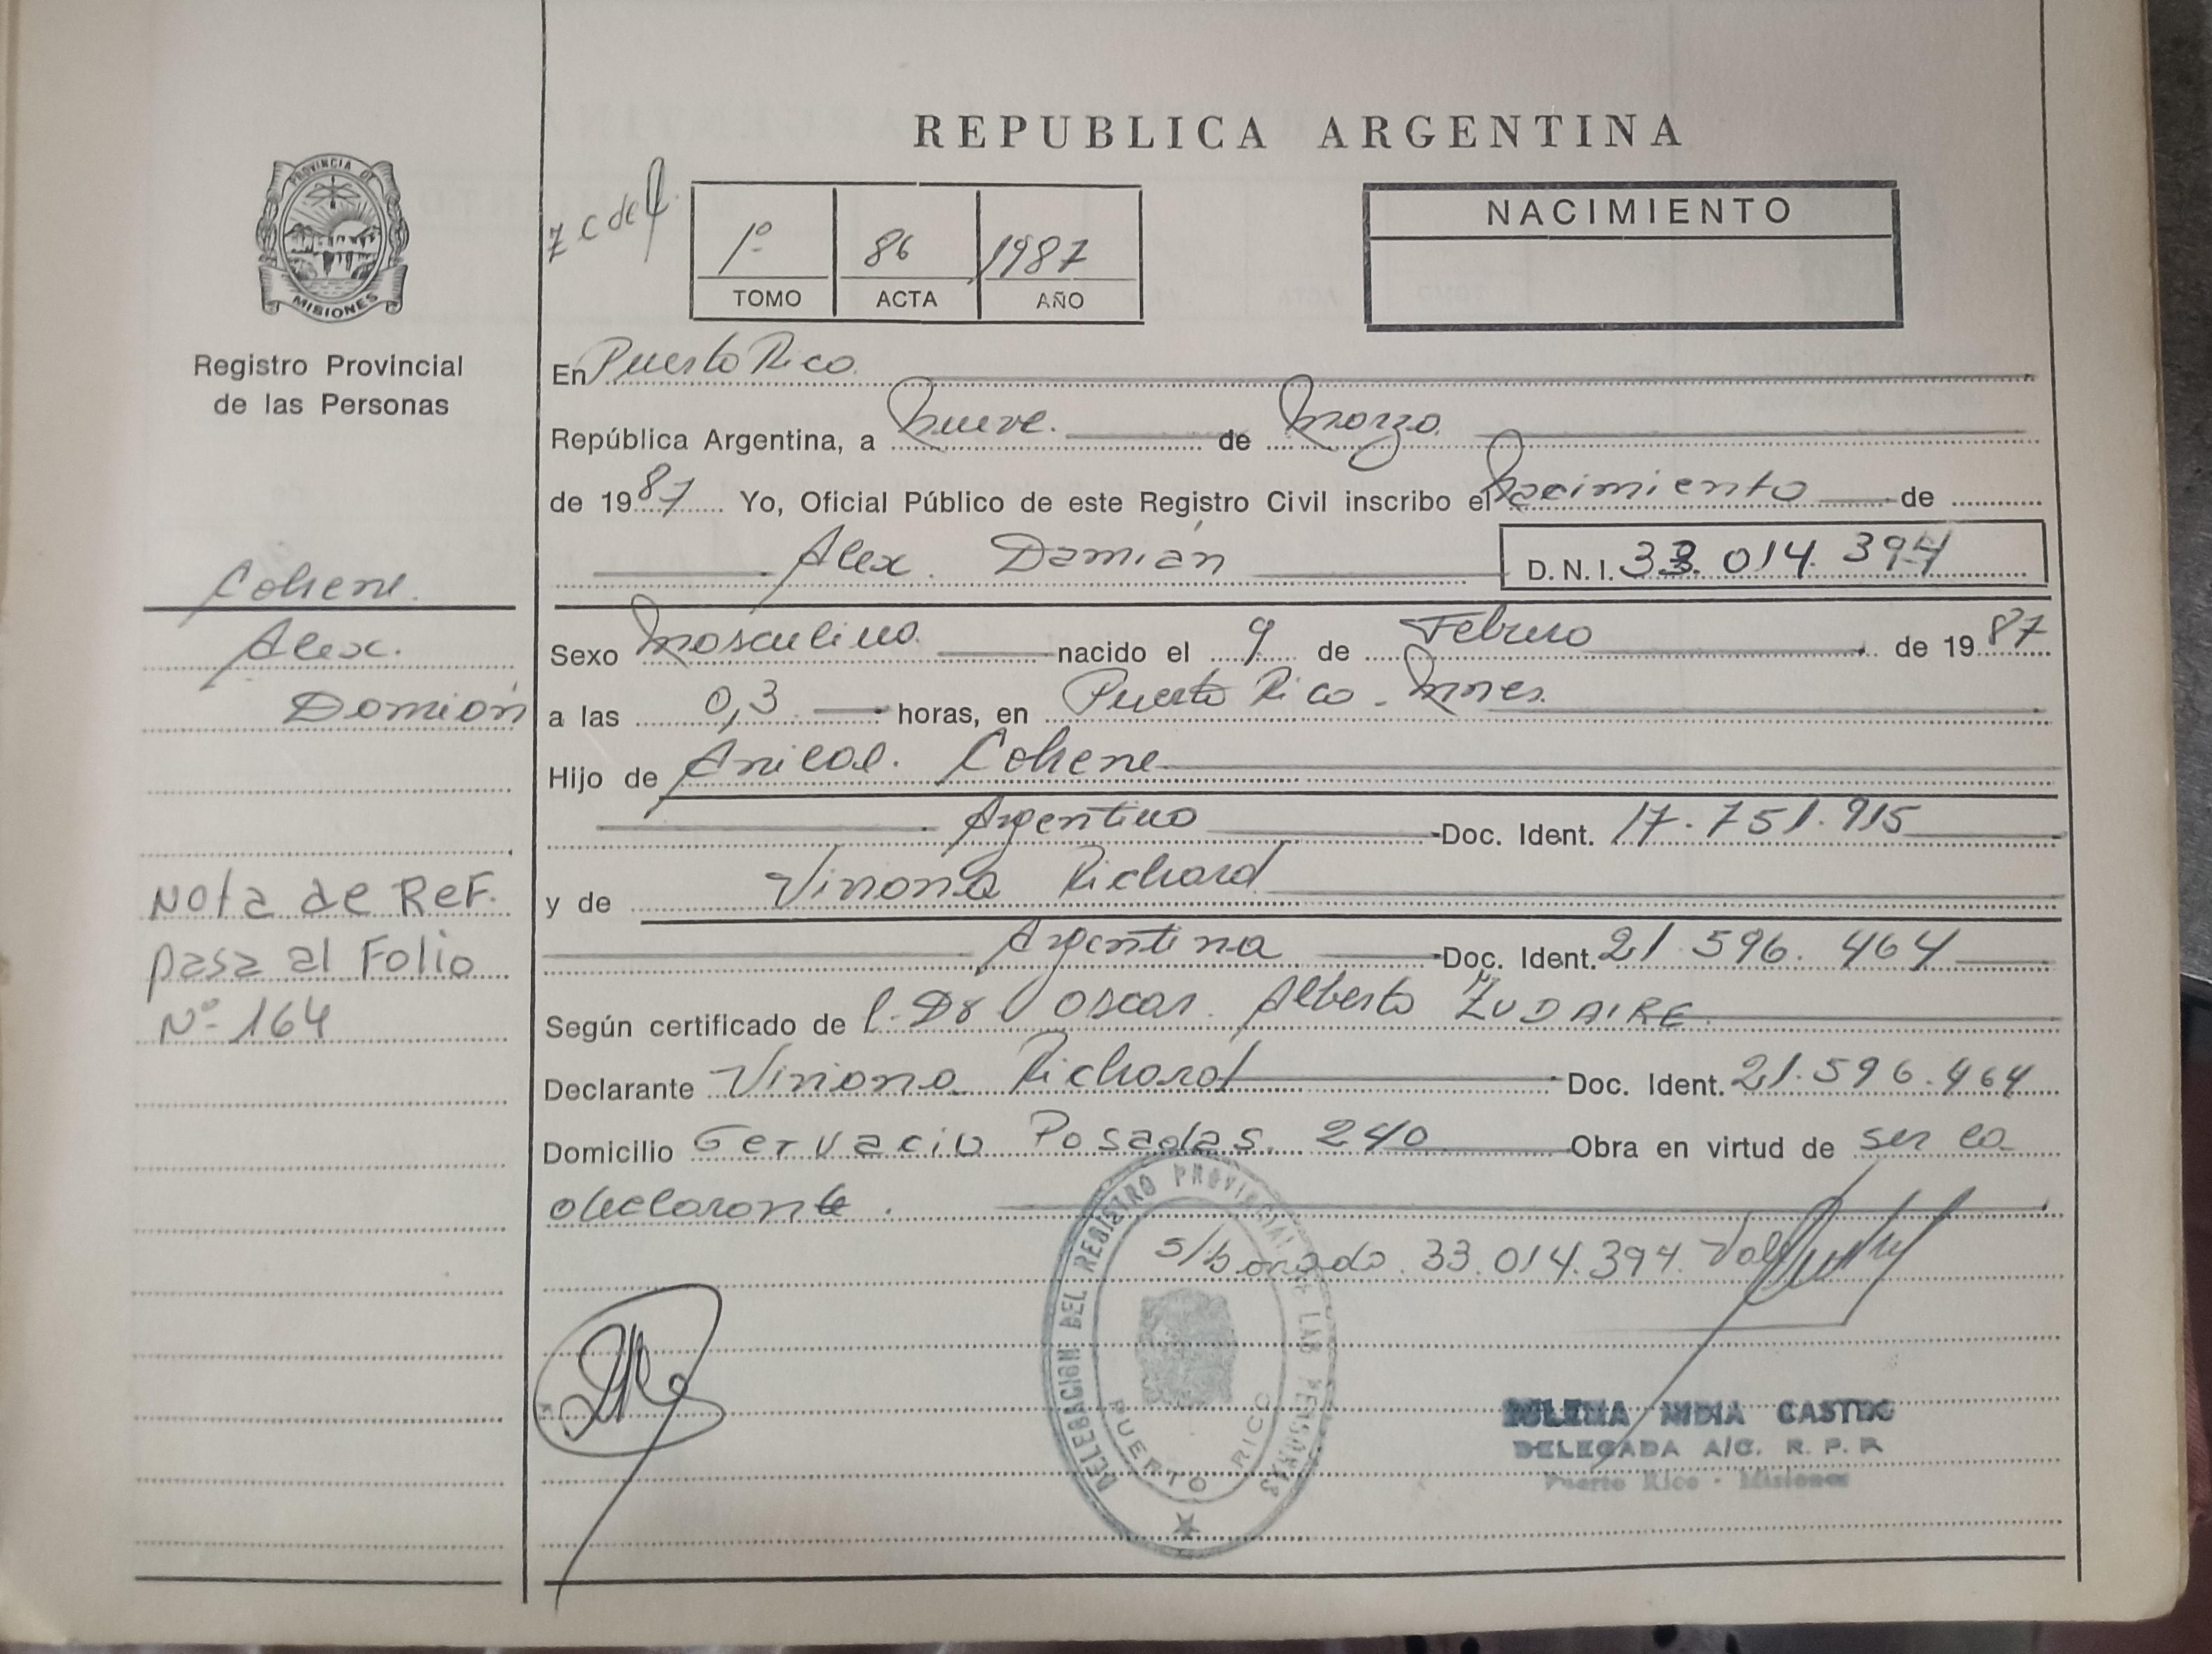 REPUBLICA ARGENTINA
PROVINCIA DE
MISIONES
Registro Provincial
de las Personas
1º 86 1987
TOMO ACTA AÑO
NACIMIENTO
En Puerto Rico
República Argentina, a Nueve de Marzo
de 1987 Yo, Oficial Público de este Registro Civil inscribo el Nacimiento de
Alex Damián D.N.I. 33.014.394
Cohene
Alex
Damián
Sexo Masculino nacido el 9 de Febrero de 1987
a las 0,3 horas, en Puerto Rico - Mnes.
Hijo de Anibal Cohene
Argentino Doc. Ident. 17.751.915
y de Viviana Richard
Argentina Doc. Ident. 21.596.464
Nota de Ref.
pasa al Folio
Nº 164
Según certificado de l. Dr Oscar Alberto ZUDAIRE
Declarante Viviana Richard Doc. Ident. 21.596.464
Domicilio Gervacio Posadas 240 Obra en virtud de ser la
declarante.
s/borrado 33.014.394 Vale
DELEGACION DEL REGISTRO PROVINCIAL DE LAS PERSONAS
PUERTO RICO
NIDIA CASTRO
DELEGADA A/C. R. P. P.
Puerto Rico - Misiones